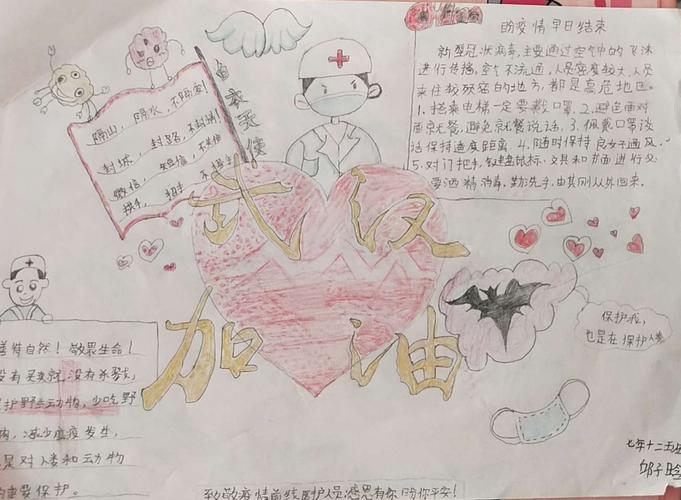 盼疫情早日结束
新型冠状病毒,主要通过空气中的飞沫
进行传播,空气不流通,人员密度较大,人员
来往较频密的地方,都是高危地区。
1.搭乘电梯一定要戴口罩 2.避免面对
面就餐,避免就餐说话,3.佩戴口罩谈
话保持适度距离 4.随时保持良好通风,
5.对门把手,键盘鼠标,文具和书面进行
要洒精消毒,勤洗手,由其刚从外回来.
隔山,隔水,不隔爱!
封城,封路,不封情!
微信,短信,
拱手,招手,
白衣天使
武汉
加油
保护我,
也是在保护人类
善待自然!敬畏生命!
没有买卖就没有杀戮,
护野生动物,少吃野
减少瘟疫发生,
是对人类和动物
重要保护。
七年十二五班
致敬疫情前线医护人员,感恩有你 盼你平安!